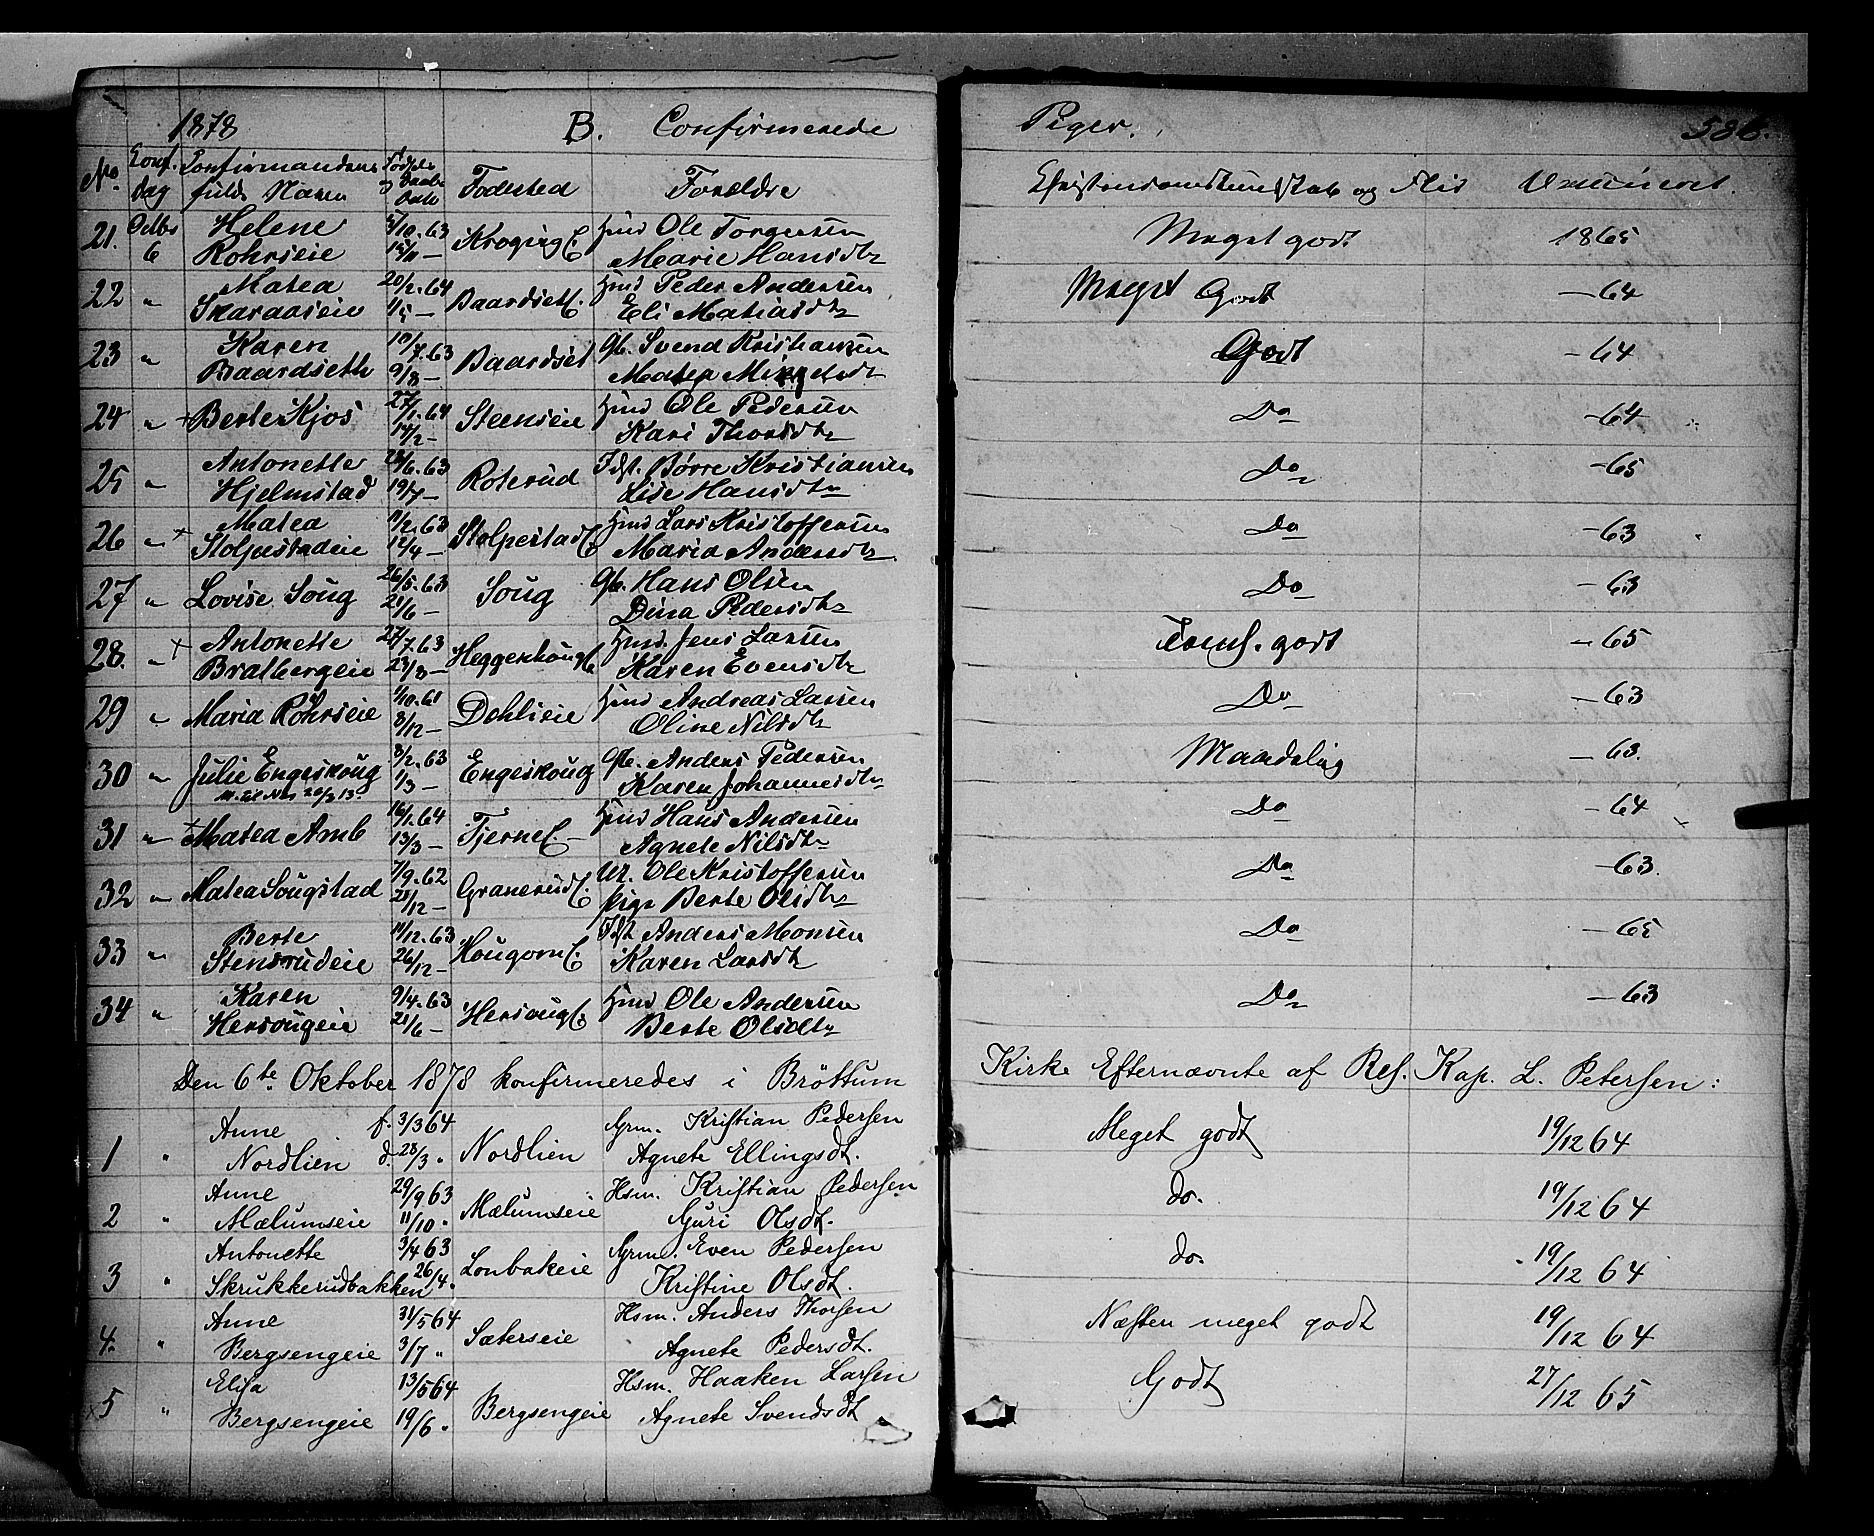 1878 B. Confirmerede Piger. 586.
No. Conf. Dag Confirmandens fulde Navn Fødsels og Daabs Dato Fødested Forældre Christendomskundskab og Flid Vaccineret.
21. Octbr 6 Helene Rohrseie 5/10.63 15/11 — Kroging E. Hmd Ole Torgersen Marie Hansdtr Meget godt 1865
22 " Matea Skaraaseie 20/2.64 1/5 — Baardset E. Hmd Peder Andersen Eli Matiasdtr Meget Godt — 64
23 " Karen Baardseth 10/7.63 9/8 — Baardset Gb. Svend Kristiansen Matea Mikkelsdtr Godt — 64
24 " + Berte Kjos 27/1.64 14/2 — Steenseie Hmd Ole Pedersen Kari Thorsdtr Do — 64
25 " Antonette Hjelmstad 28/6.63 19/7 — Roterud Idst. Børre Kristiansen Lise Hansdtr Do — 65
26 " + Matea Stolpestadeie 11/2.63 12/4 — Stolpestad E. Hmd Lars Kristoffersen Maria Andersdtr Do — 63
27 " Lovise Soug 26/5.63 21/6 — Soug Gb. Hans Olsen Dina Pedersdtr Do — 63
28. " + Antonette Bratbergeie 27/7.63 23/8 — Heggenhoug E Hmd. Jens Larsen Karen Evensdtr Temml. godt — 65
29 " Maria Rohrseie 1/10.61 8/12 — Dehlieie Hmd Andreas Larsen Oline Nilsdtr Do — 63
30 " Julie Engeskoug 8/2.63 1/3 — Engeskoug Gb. Anders Pedersen Karen Johannesdtr Maadelig — 63.
31 " + Matea Amb 16/1.64 13/3 — Tjerne E. Hmd Hans Andersen Agnete Nilsdtr Do — 64
32 " Matea Sougstad 7/9.62 21/12 — Granerud E. Uz. Ole Kristoffersen pige Berte Olsdtr Do — 63.
33 " Berte Stensrudeie 11/12.63 26/12 — Hougom E. Idst Anders Monsen Karen Larsdtr Do — 65
34 " Karen Hersougeie 9/4.63 21/6 — Hersoug E. Hmd Ole Andersen Berte Olsdtr Do — 63
Den 6te Oktober 1878 konfirmeredes i Bröttum Kirke Efternævnte af Res. Kap. L. Petersen:
1 " Anne Nordlien f. 3/3 64 d. 28/3 " Nordlien Grm. Kristian Pedersen Agnete Ellingsdt. Meget godt 19/12 64
2 " Anne Mælumseie 29/9 63 11/10 " Mælumseie Hsm. Kristian Pedersen Guri Olsdt. do. 19/12 64
3 " Antonette Skrukkerudbakken 3/4 63 26/4 " Lonbakeie Grm. Even Pedersen Kristine Olsdt. do. 19/12 64
4. " Anne Bergsengeie 31/5 64 3/7 " Sæterseie Hsm. Anders Thorsen Agnete Pedersdt. Næsten meget godt 19/12 64
x 5 " Elisa Bergsengeie 13/5 64 19/6 " Bergsengeie Hsm. Haaken Larsen Agnete Svendsdt Godt 27/12 65